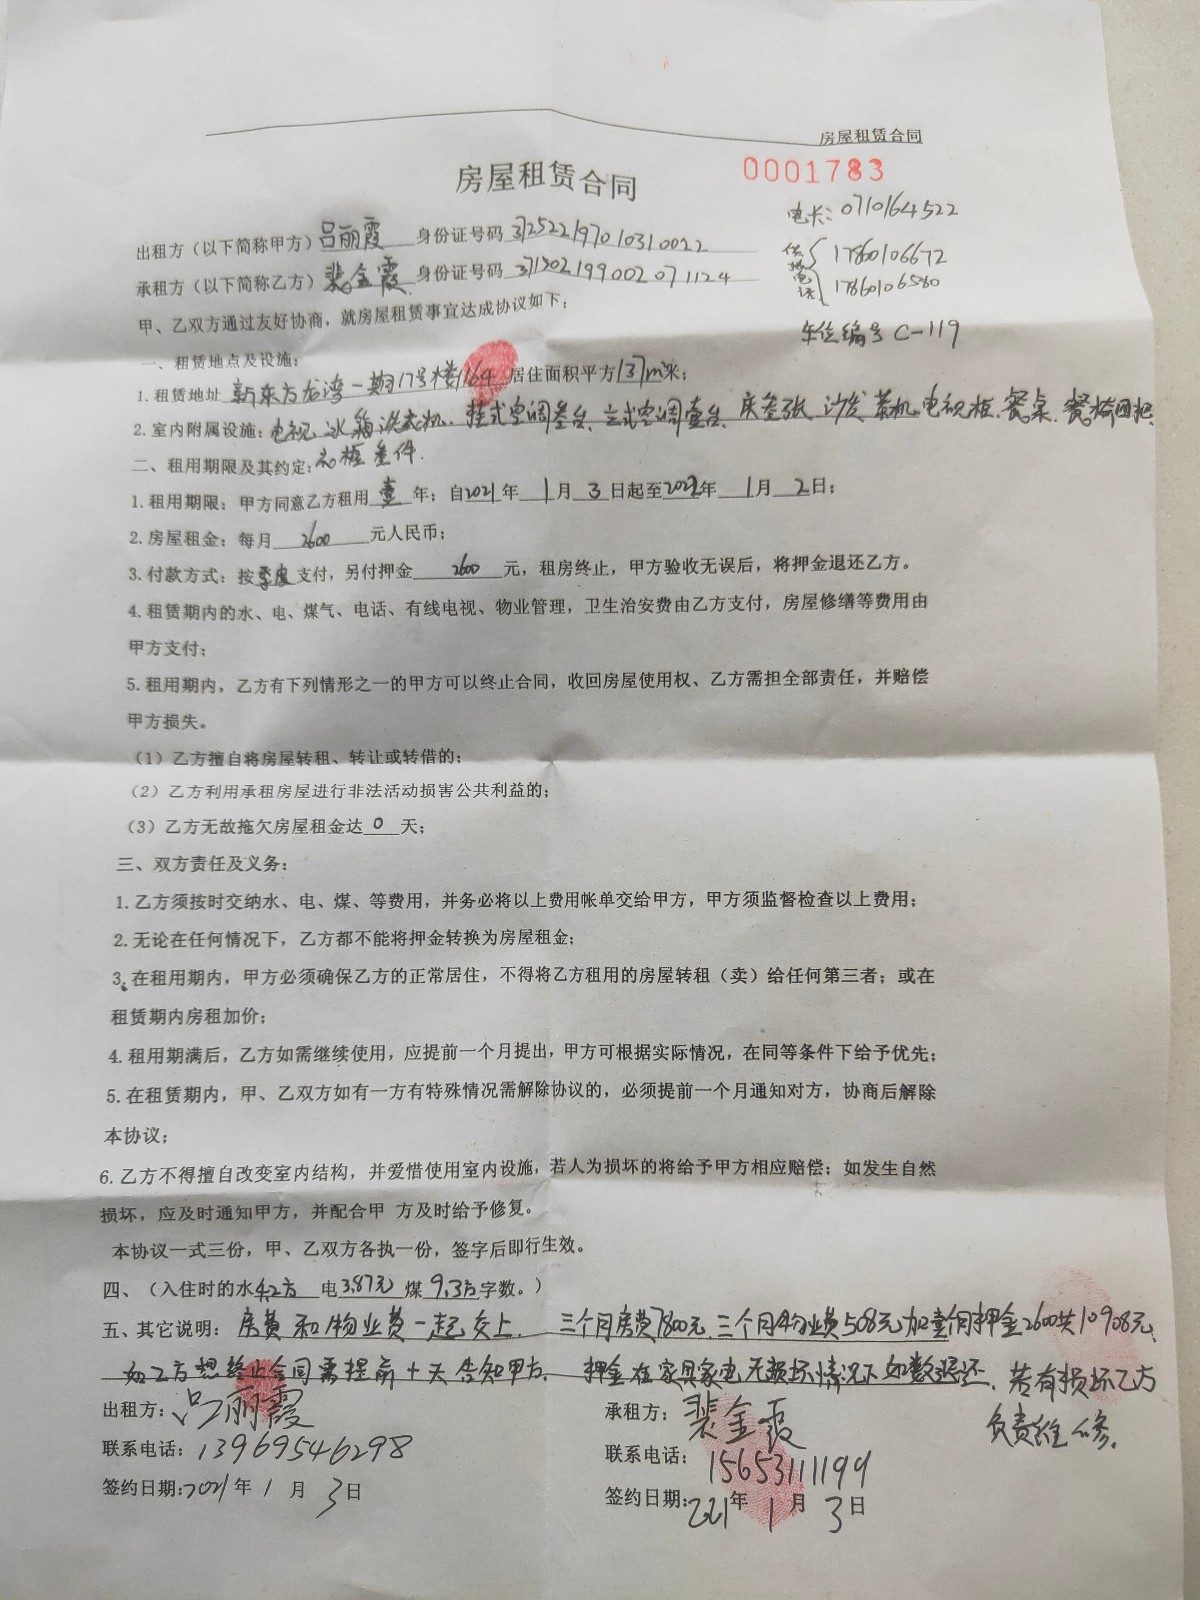 房屋租赁合同
房屋租赁合同
0001783
电卡:0710164522
出租方（以下简称甲方）吕丽霞 身份证号码 372522197010310022
供热电话{17860106672
17860106580
承租方（以下简称乙方）裴金霞 身份证号码 371302199002071124
车位编号 C-119
甲、乙双方通过友好协商，就房屋租赁事宜达成协议如下：
一、租赁地点及设施：
1.租赁地址 新东方龙湾一期17号楼1164 居住面积平方137m²米；
2.室内附属设施：电视.冰箱洗衣机.挂式空调叁台.立式空调壹台.床叁张.沙发茶机.电视柜.餐桌.餐椅四把.
衣柜叁件.
二、租用期限及其约定：
1.租用期限：甲方同意乙方租用 壹 年；自2021年 1月 3 日起至2022年 1月 2日；
2.房屋租金：每月 2600 元人民币；
3.付款方式：按季度支付，另付押金 2600 元，租房终止，甲方验收无误后，将押金退还乙方。
4.租赁期内的水、电、煤气、电话、有线电视、物业管理，卫生治安费由乙方支付，房屋修缮等费用由
甲方支付；
5.租用期内，乙方有下列情形之一的甲方可以终止合同，收回房屋使用权、乙方需担全部责任，并赔偿
甲方损失。
（1）乙方擅自将房屋转租、转让或转借的；
（2）乙方利用承租房屋进行非法活动损害公共利益的；
（3）乙方无故拖欠房屋租金达 0 天；
三、双方责任及义务：
1.乙方须按时交纳水、电、煤、等费用，并务必将以上费用帐单交给甲方，甲方须监督检查以上费用；
2.无论在任何情况下，乙方都不能将押金转换为房屋租金；
3.在租用期内，甲方必须确保乙方的正常居住，不得将乙方租用的房屋转租（卖）给任何第三者；或在
租赁期内房租加价；
4.租用期满后，乙方如需继续使用，应提前一个月提出，甲方可根据实际情况，在同等条件下给予优先；
5.在租赁期内，甲、乙双方如有一方有特殊情况需解除协议的，必须提前一个月通知对方，协商后解除
本协议；
6.乙方不得擅自改变室内结构，并爱惜使用室内设施，若人为损坏的将给予甲方相应赔偿；如发生自然
损坏，应及时通知甲方，并配合甲 方及时给予修复。
本协议一式三份，甲、乙双方各执一份，签字后即行生效。
四、（入住时的水42方 电3.87元 煤9.3方字数。）
五、其它说明：房费和物业费一起交上. 三个月房费7800元.三个月物业费508元加壹个月押金2600共10908元.
如乙方想终止合同需提前十天告知甲方. 押金在家具家电无损坏情况下如数退还.若有损坏乙方
负责维修.
出租方：吕丽霞 承租方：裴金霞
联系电话：13969546298 联系电话：15653111199
签约日期：2021年 1 月 3日 签约日期：2021年 1 月 3 日